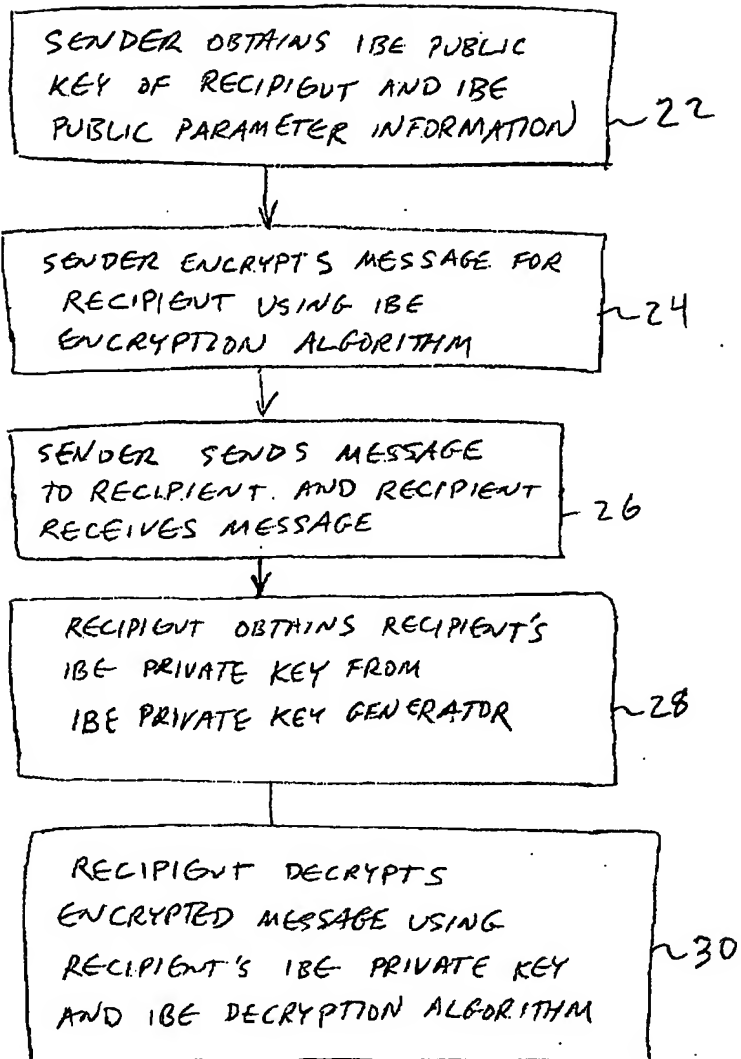 SENDER OBTAINS IBE PUBLIC
KEY OF RECIPIENT AND IBE
PUBLIC PARAMETER INFORMATION
22
SENDER ENCRYPTS MESSAGE FOR
RECIPIENT USING IBE
ENCRYPTION ALGORITHM
24
SENDER SENDS MESSAGE
TO RECIPIENT. AND RECIPIENT
RECEIVES MESSAGE
26
RECIPIENT OBTAINS RECIPIENT'S
IBE PRIVATE KEY FROM
IBE PRIVATE KEY GENERATOR
28
RECIPIENT DECRYPTS
ENCRYPTED MESSAGE USING
RECIPIENT'S IBE PRIVATE KEY
AND IBE DECRYPTION ALGORITHM
30